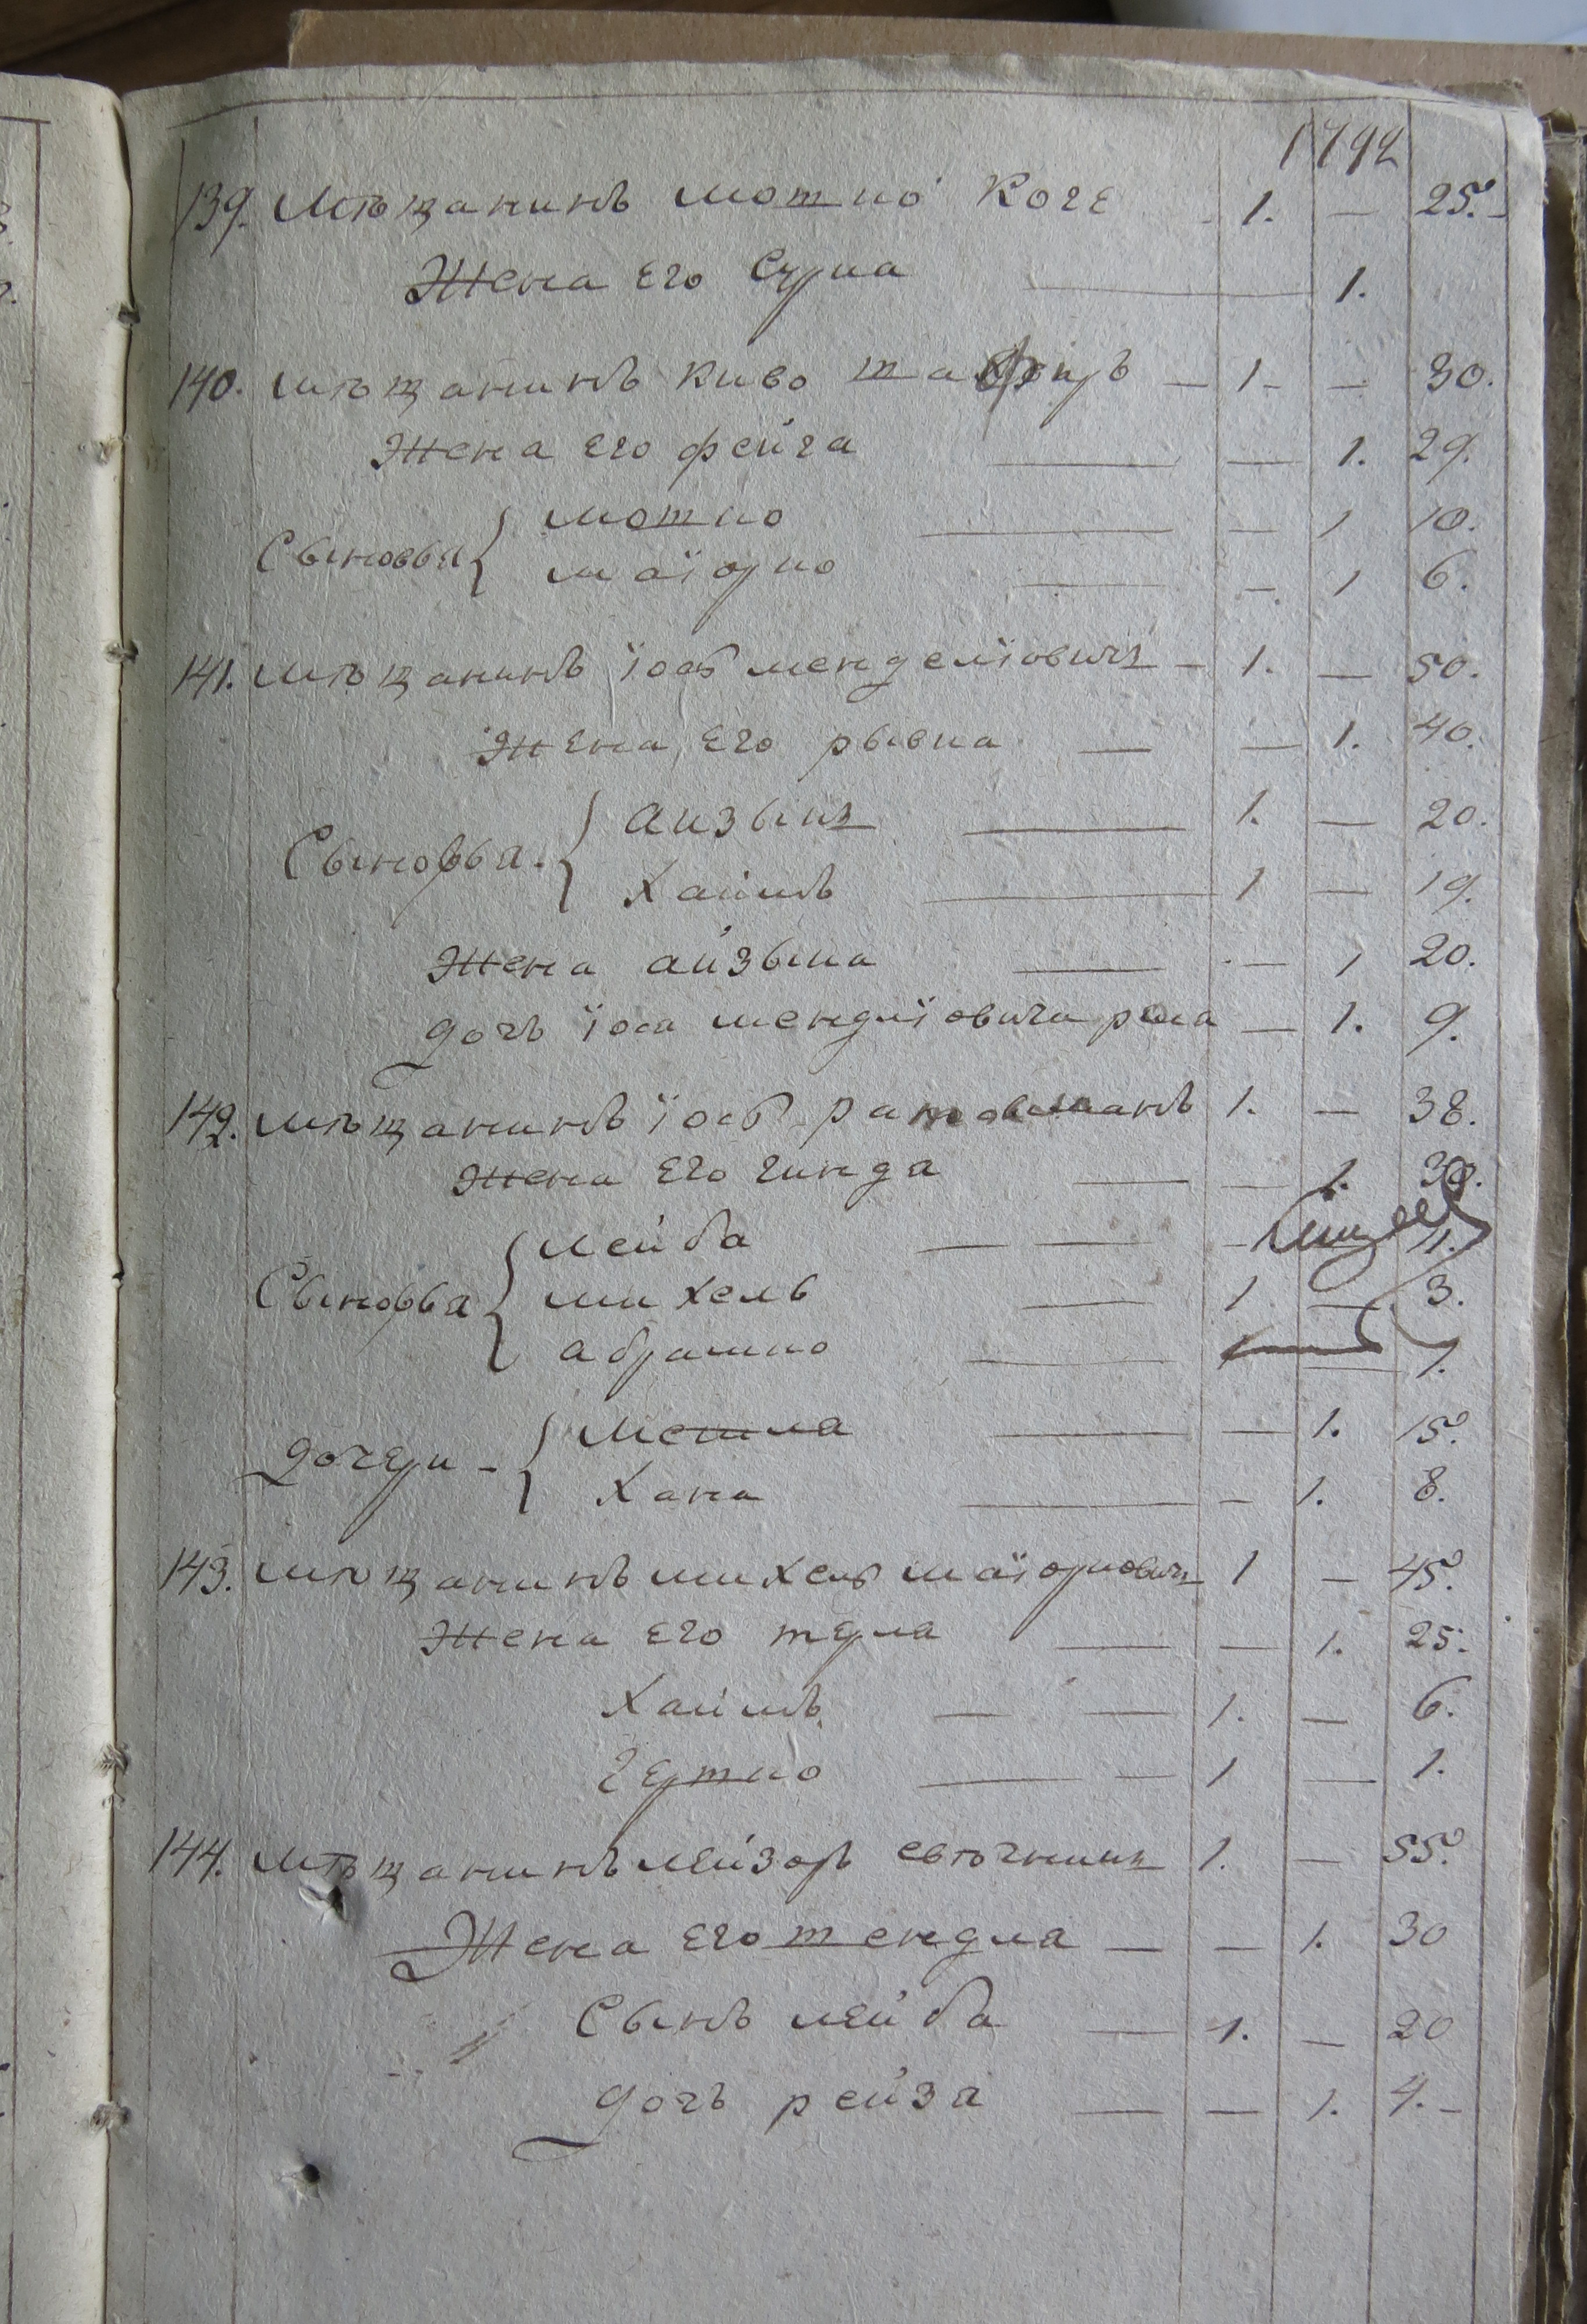 1792
139. Мѣщанинъ мотио Коге 1. — 25.
Жена Его Сурла — 1.
140. мѣщанинъ киво — 1 — — 30.
Жена Его фейга — — 1. 29.
мотио — — 1 10.
Сыновья {
маїорио — — 1 6.
141. мѣщанинъ їось менделїовичъ — 1. — 50.
Жена Его рывка — — 1. 40.
айзыкъ — 1. — 20.
Сыновья. {
Хаимъ — 1 — 19.
Жена айзыка — — 1 20.
дочь їося мендлїовича — 1. 9.
142. мѣщанинъ їось 1. — 38.
Жена Его гинда — — 1. 30.
лейба — — — 11.
Сыновья { михель — 1 — 3.
абрамко — 1 — 1.
— — 1. 15.
дочери — {
Хана — — 1. 8.
143. мѣщанинъ михель маїоровичъ 1 — 45.
Жена Его — — 1. 25.
Хаимъ — — 1. — 6.
гершко — — 1 — 1.
144. мѣщанинъ лейзоръ 1. — 55.
Жена Его тендла — — 1. 30
Сынъ лейба — 1. — 20
дочь рейза — — 1. 4. —